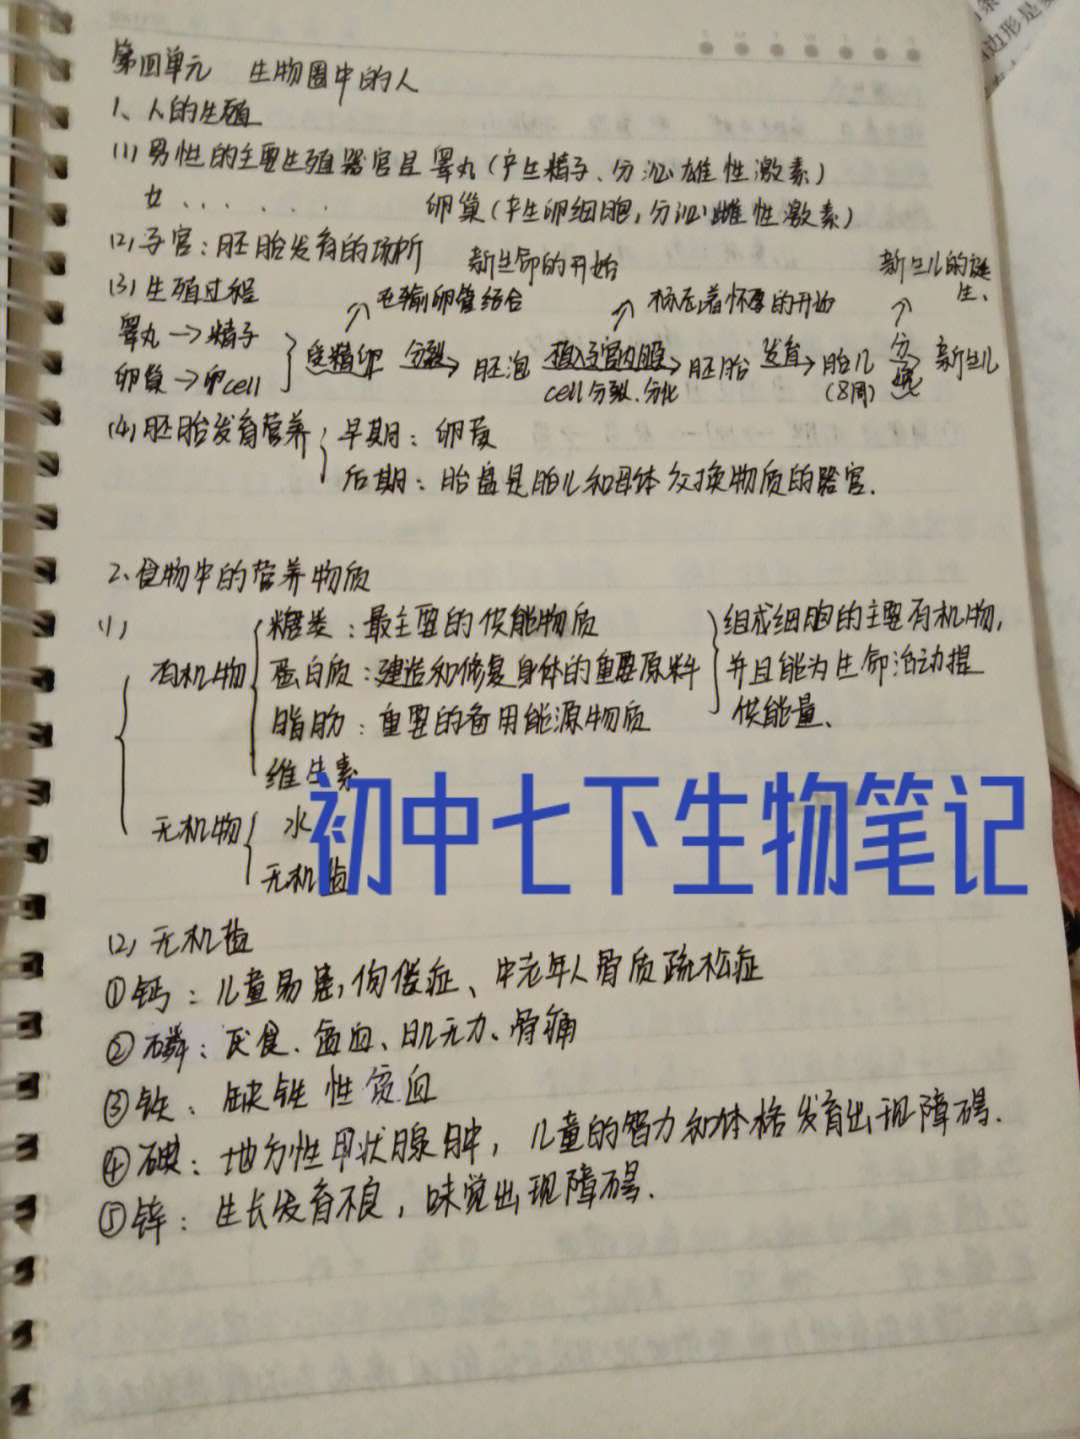 第四单元 生物圈中的人
1、人的生殖
(1) 男性的主要生殖器官且睾丸(产生精子、分泌雄性激素)
女 . . . . . . 卵巢(产生卵细胞,分泌雌性激素)
(2) 子宫:胚胎发育的场所
新生命的开始
新生儿的诞生、
(3) 生殖过程
在输卵管结合
标志着怀孕的开始
睾丸→精子
卵巢→卵cell
受精卵 分裂→ 胚泡 植入子宫内膜→ 胚胎 发育→ 胎儿 分娩→ 新生儿
cell分裂、分化
(8周)
(4) 胚胎发育营养 早期:卵黄
后期:胎盘是胎儿和母体交换物质的器官.
2、食物中的营养物质
(1)
有机物 糖类:最主要的供能物质
蛋白质:建造和修复身体的重要原料
脂肪:重要的备用能源物质
维生素
组成细胞的主要有机物,
并且能为生命活动提
供能量、
无机物 水
无机盐
初中七下生物笔记
(2) 无机盐
①钙:儿童易患佝偻症、中老年人骨质疏松症
②磷:厌食、贫血、肌无力、骨痛
③铁:缺铁性贫血
④碘:地方性甲状腺肿,儿童的智力和体格发育出现障碍.
⑤锌:生长发育不良,味觉出现障碍.
边形是